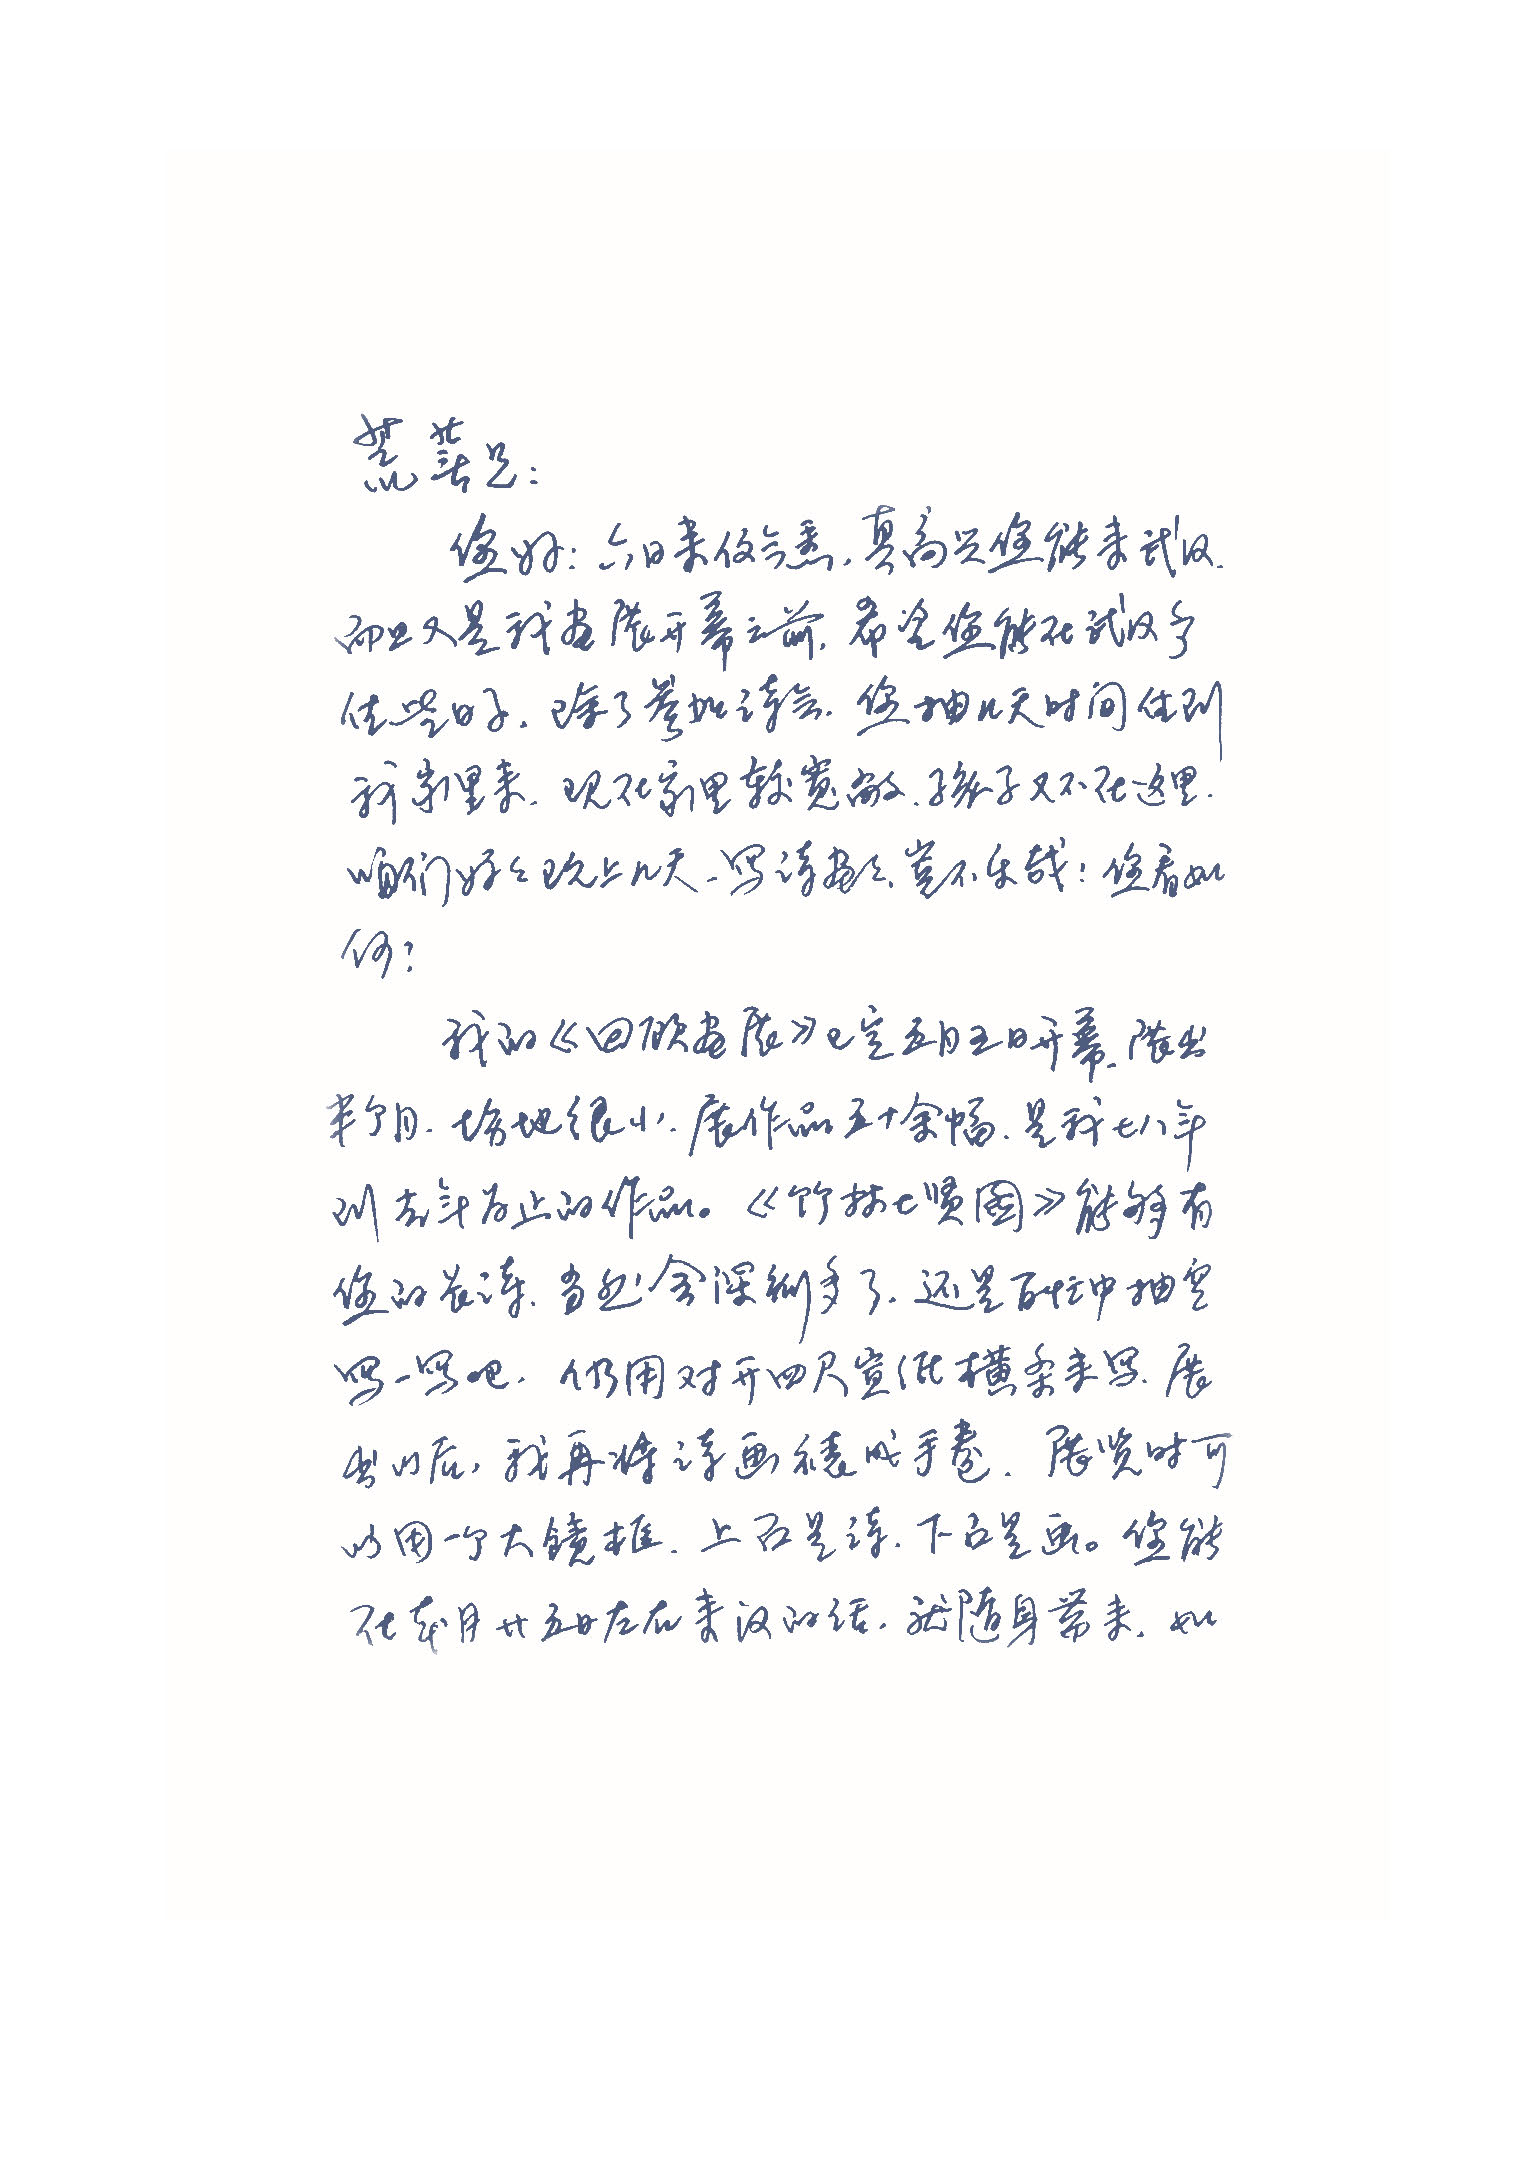 荒芜兄：
您好：六日来信今悉，真高兴您能来武汉.
而且又是我画展开幕之前，希望您能在武汉多
住些日子. 除了参加诗会. 您抽几天时间住到
我家里来. 现在家里较宽敞. 孩子又不在这里.
咱们好好玩上几天、写诗画画、岂不乐哉！您看如
何？
我的《回顾画展》已定五月五日开幕. 展出
半个月. 场地很小. 展作品五十余幅. 是我七八年
到去年为止的作品。《竹林七贤图》能够有
您的长诗、当然会深刻多了. 还是百忙中抽空
写一写吧. 仍用对开四尺宣纸横条来写. 展
出以后，我再将诗画裱成手卷. 展览时可
以用一个大镜框. 上面是诗. 下面是画。您能
在本月廿五日左右来汉的话. 就随身带来. 如